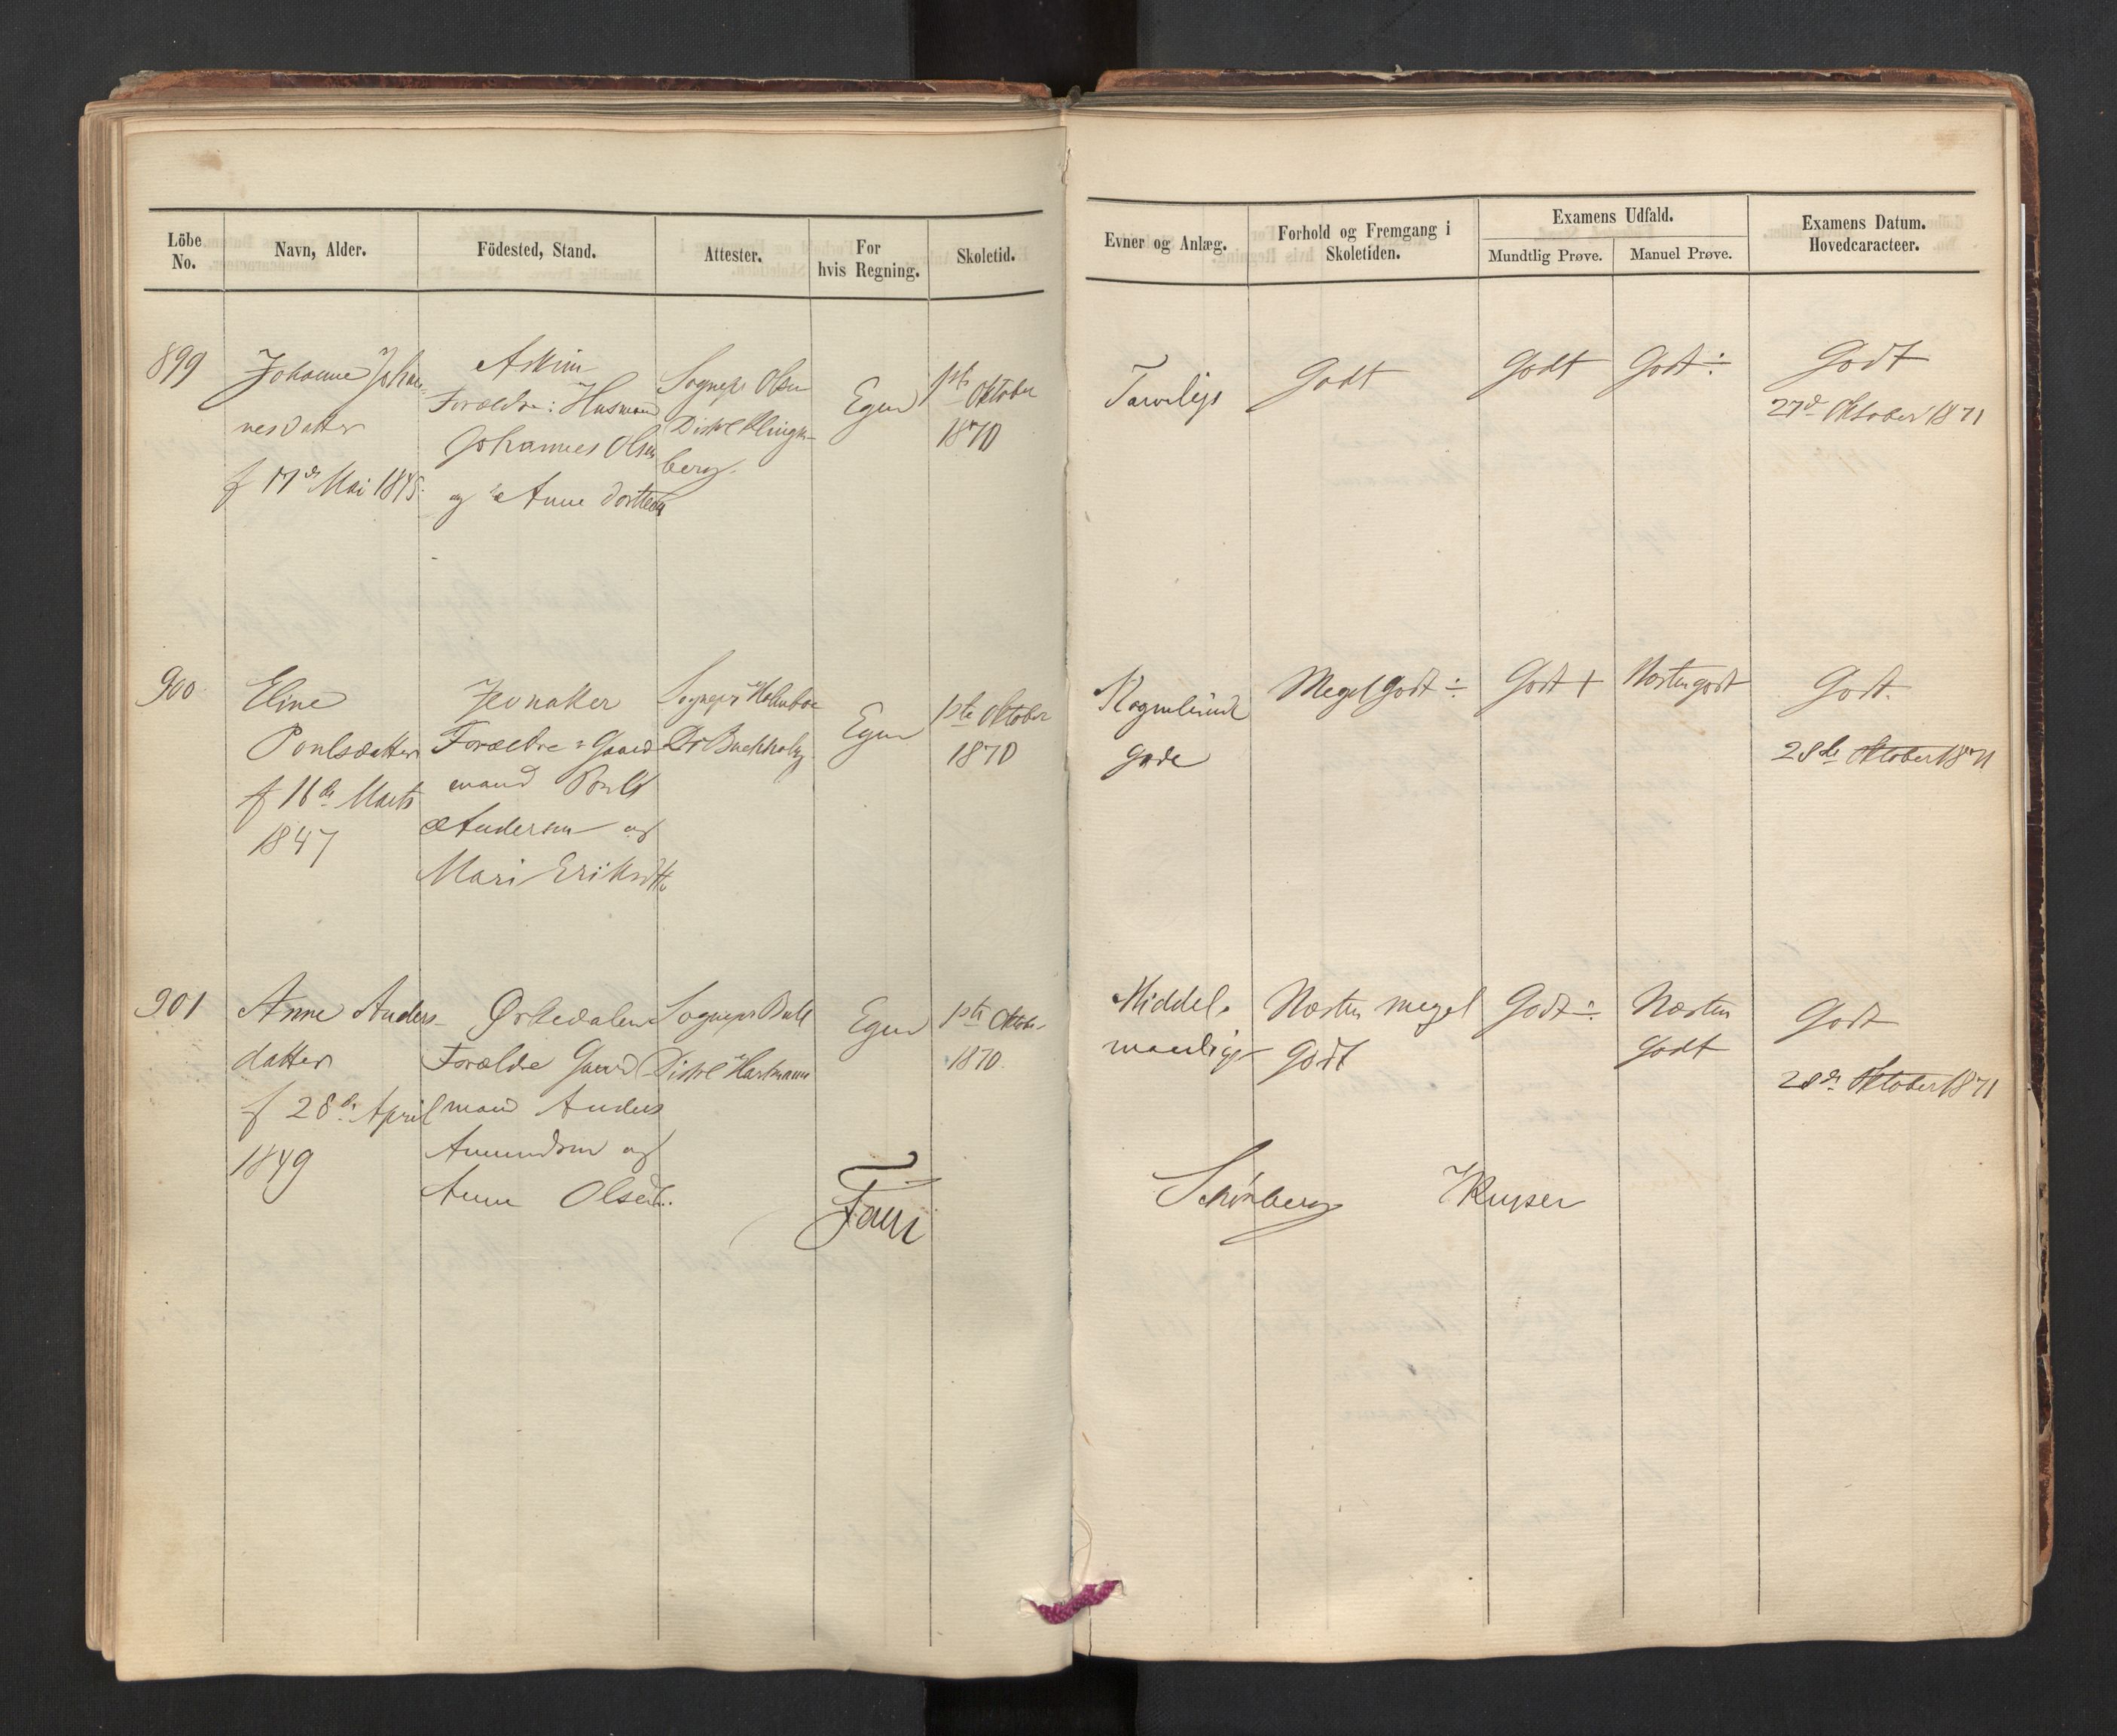 Löbe No.
Navn, Alder.
Födested, Stand.
Attester.
For hvis Regning.
Skoletid.
Evner og Anlæg.
Forhold og Fremgang i Skoletiden.
Examens Udfald.
Mundtlig Prøve.
Manuel Prøve.
Examens Datum. Hovedcaracteer.
899
Johanne Johan-
nesdatter
f 17de Mai 1845.
Askim
Forældre: Husmand
Johannes Olsen
og Anne
Sognepr Olsen
Distrl Klingen-
berg.
Egen
1ste Oktober
1870
Tarvelige
Godt
Godt
Godt ÷
Godt
27de Oktober 1871
900
Eline
Poulsdatter
f 16de Marts
1847
Jevnaker
Forældre: Gaard-
mand Poul
Andersen og
Mari Eriksdtt
Sognepr Holmboe
Dr Buchholz
Egen
1ste Oktober
1870
gode
Meget godt ÷
Godt +
Næsten godt
Godt.
28de Oktober 1871
901
Anne Anders-
datter
f 28de April
1849
Østedalen
Forældre Gaard
mand Anders
Amundsen og
Anne Olsdt.
Sognepr Bull
Distrl Hartmann
Egen
1ste Oktob.
1870.
Middel-
maadige
Næsten meget
Godt
Godt ÷
Næsten
Godt
Godt
28de Oktober 1871
Faye
Schønberg
JKeyser